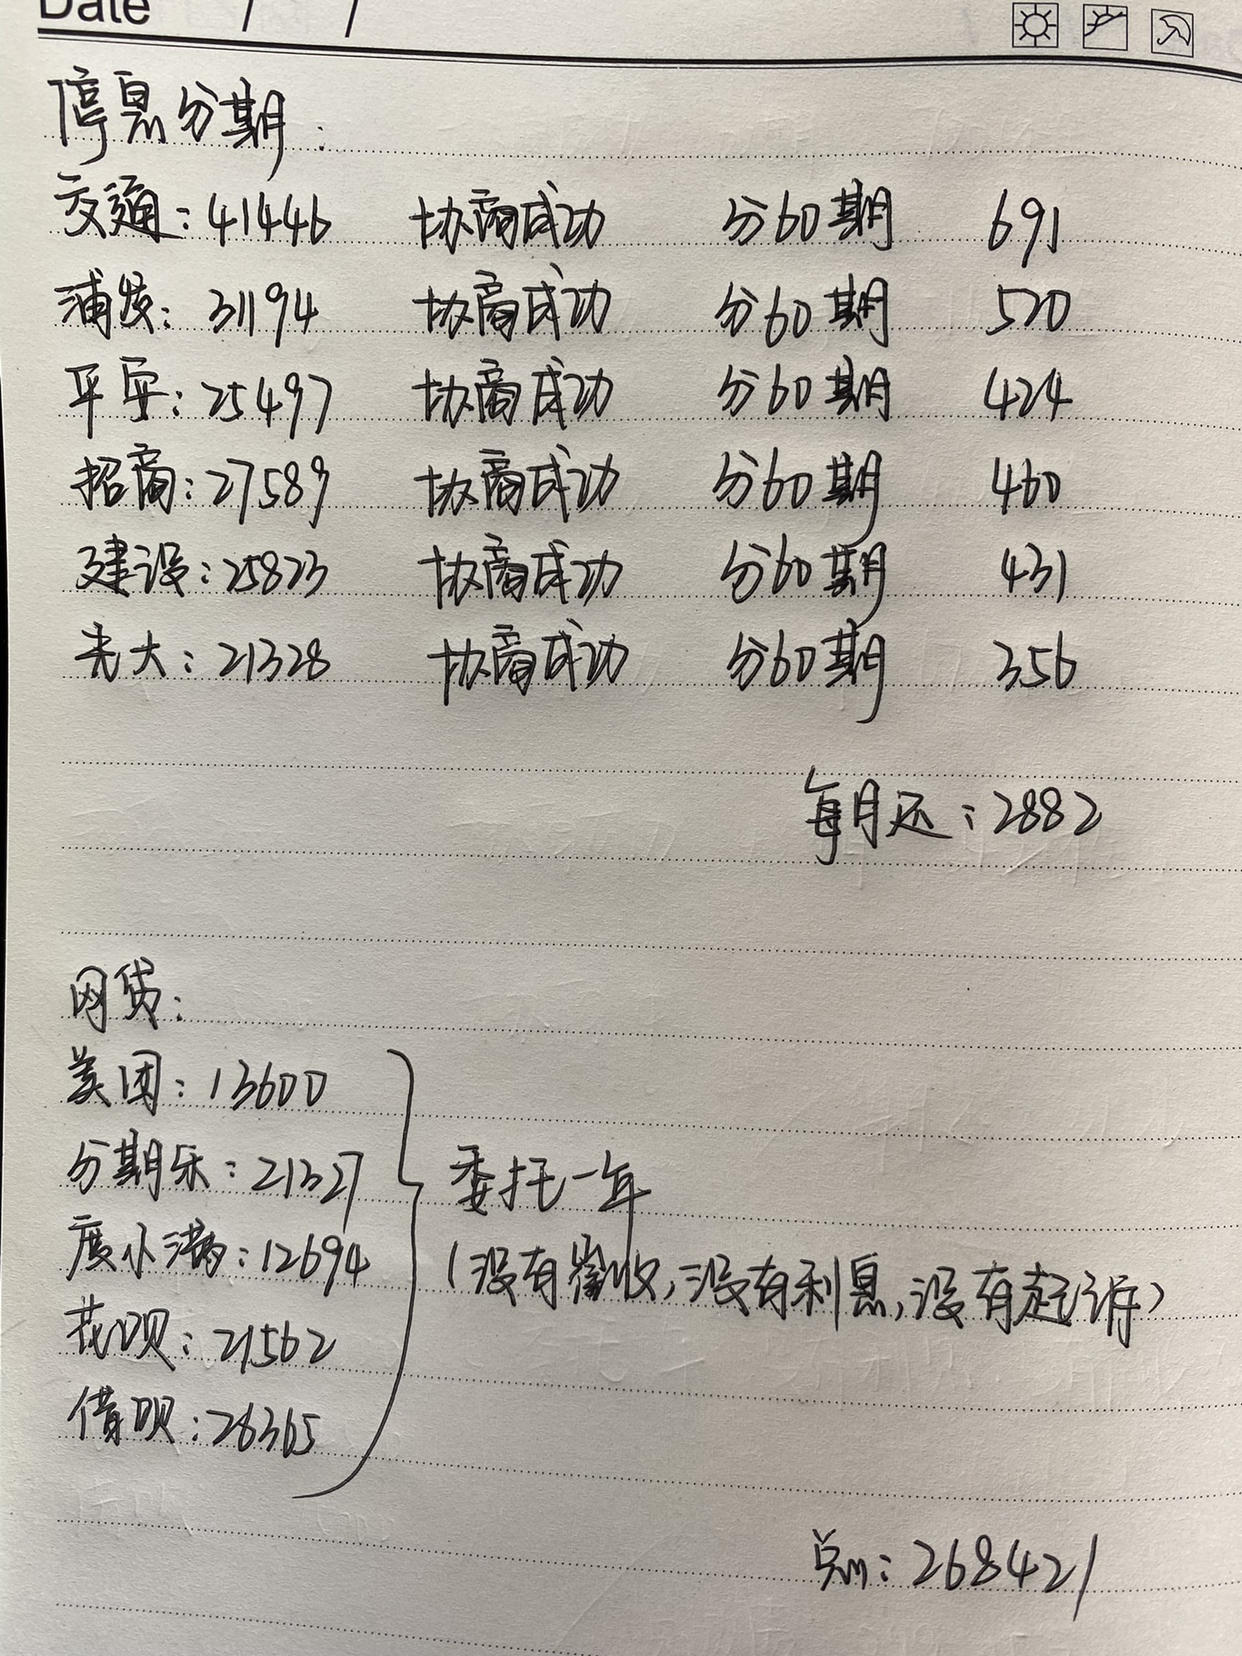 Date / /
停息分期:
交通:41446 协商成功 分60期 691
浦发:31194 协商成功 分60期 520
平安:25497 协商成功 分60期 424
招商:27589 协商成功 分60期 460
建设:25823 协商成功 分60期 431
光大:21328 协商成功 分60期 356
每月还:2882
网贷:
美团:13600
分期乐:21327
度小满:12694
花呗:21562
借呗:26365
委托一年
(没有催收,没有利息,没有起诉)
总:268421